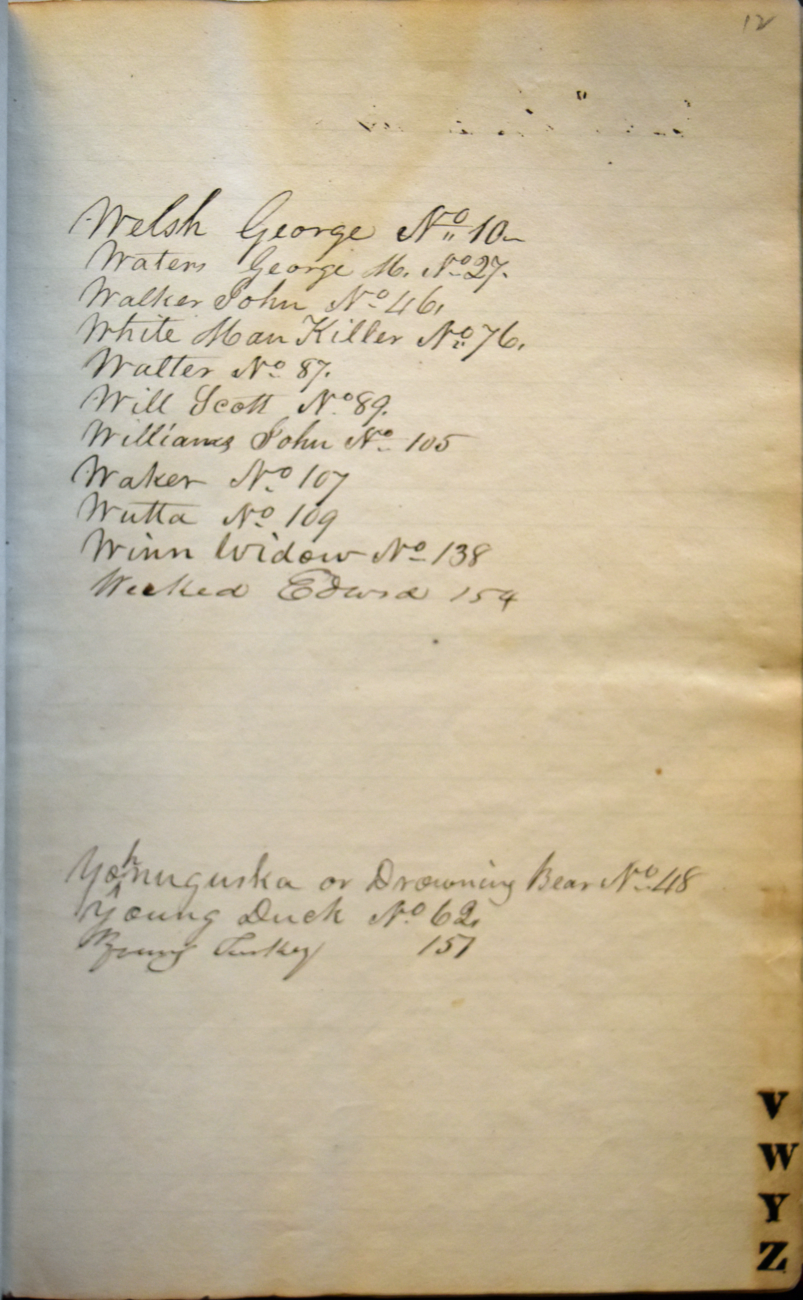 12
Welsh George No 10
Waters George M. No 27.
Walker John No 46,
White Man Killer No 76.
Walter No 87.
Will Scott No 89.
Williams John No 105
Waker No 107
Wutta No 109
Winn Widow No 138
Wicked Edwrd 154
Yohnuguska or Drowning Bear No 48
Young Duck No 62,
Young Turkey 151
V
W
Y
Z